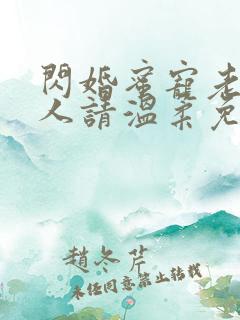 閃婚蜜寵老
人請溫柔免
趙冬芹
未任同意禁止转载